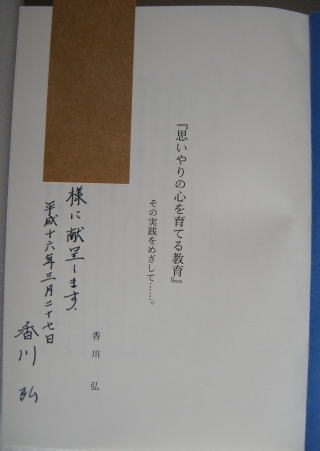 『思いやりの心を育てる教育』
その実践をめざして……。
香川　弘
様に献呈します.
平成十六年三月二十七日
香川　弘